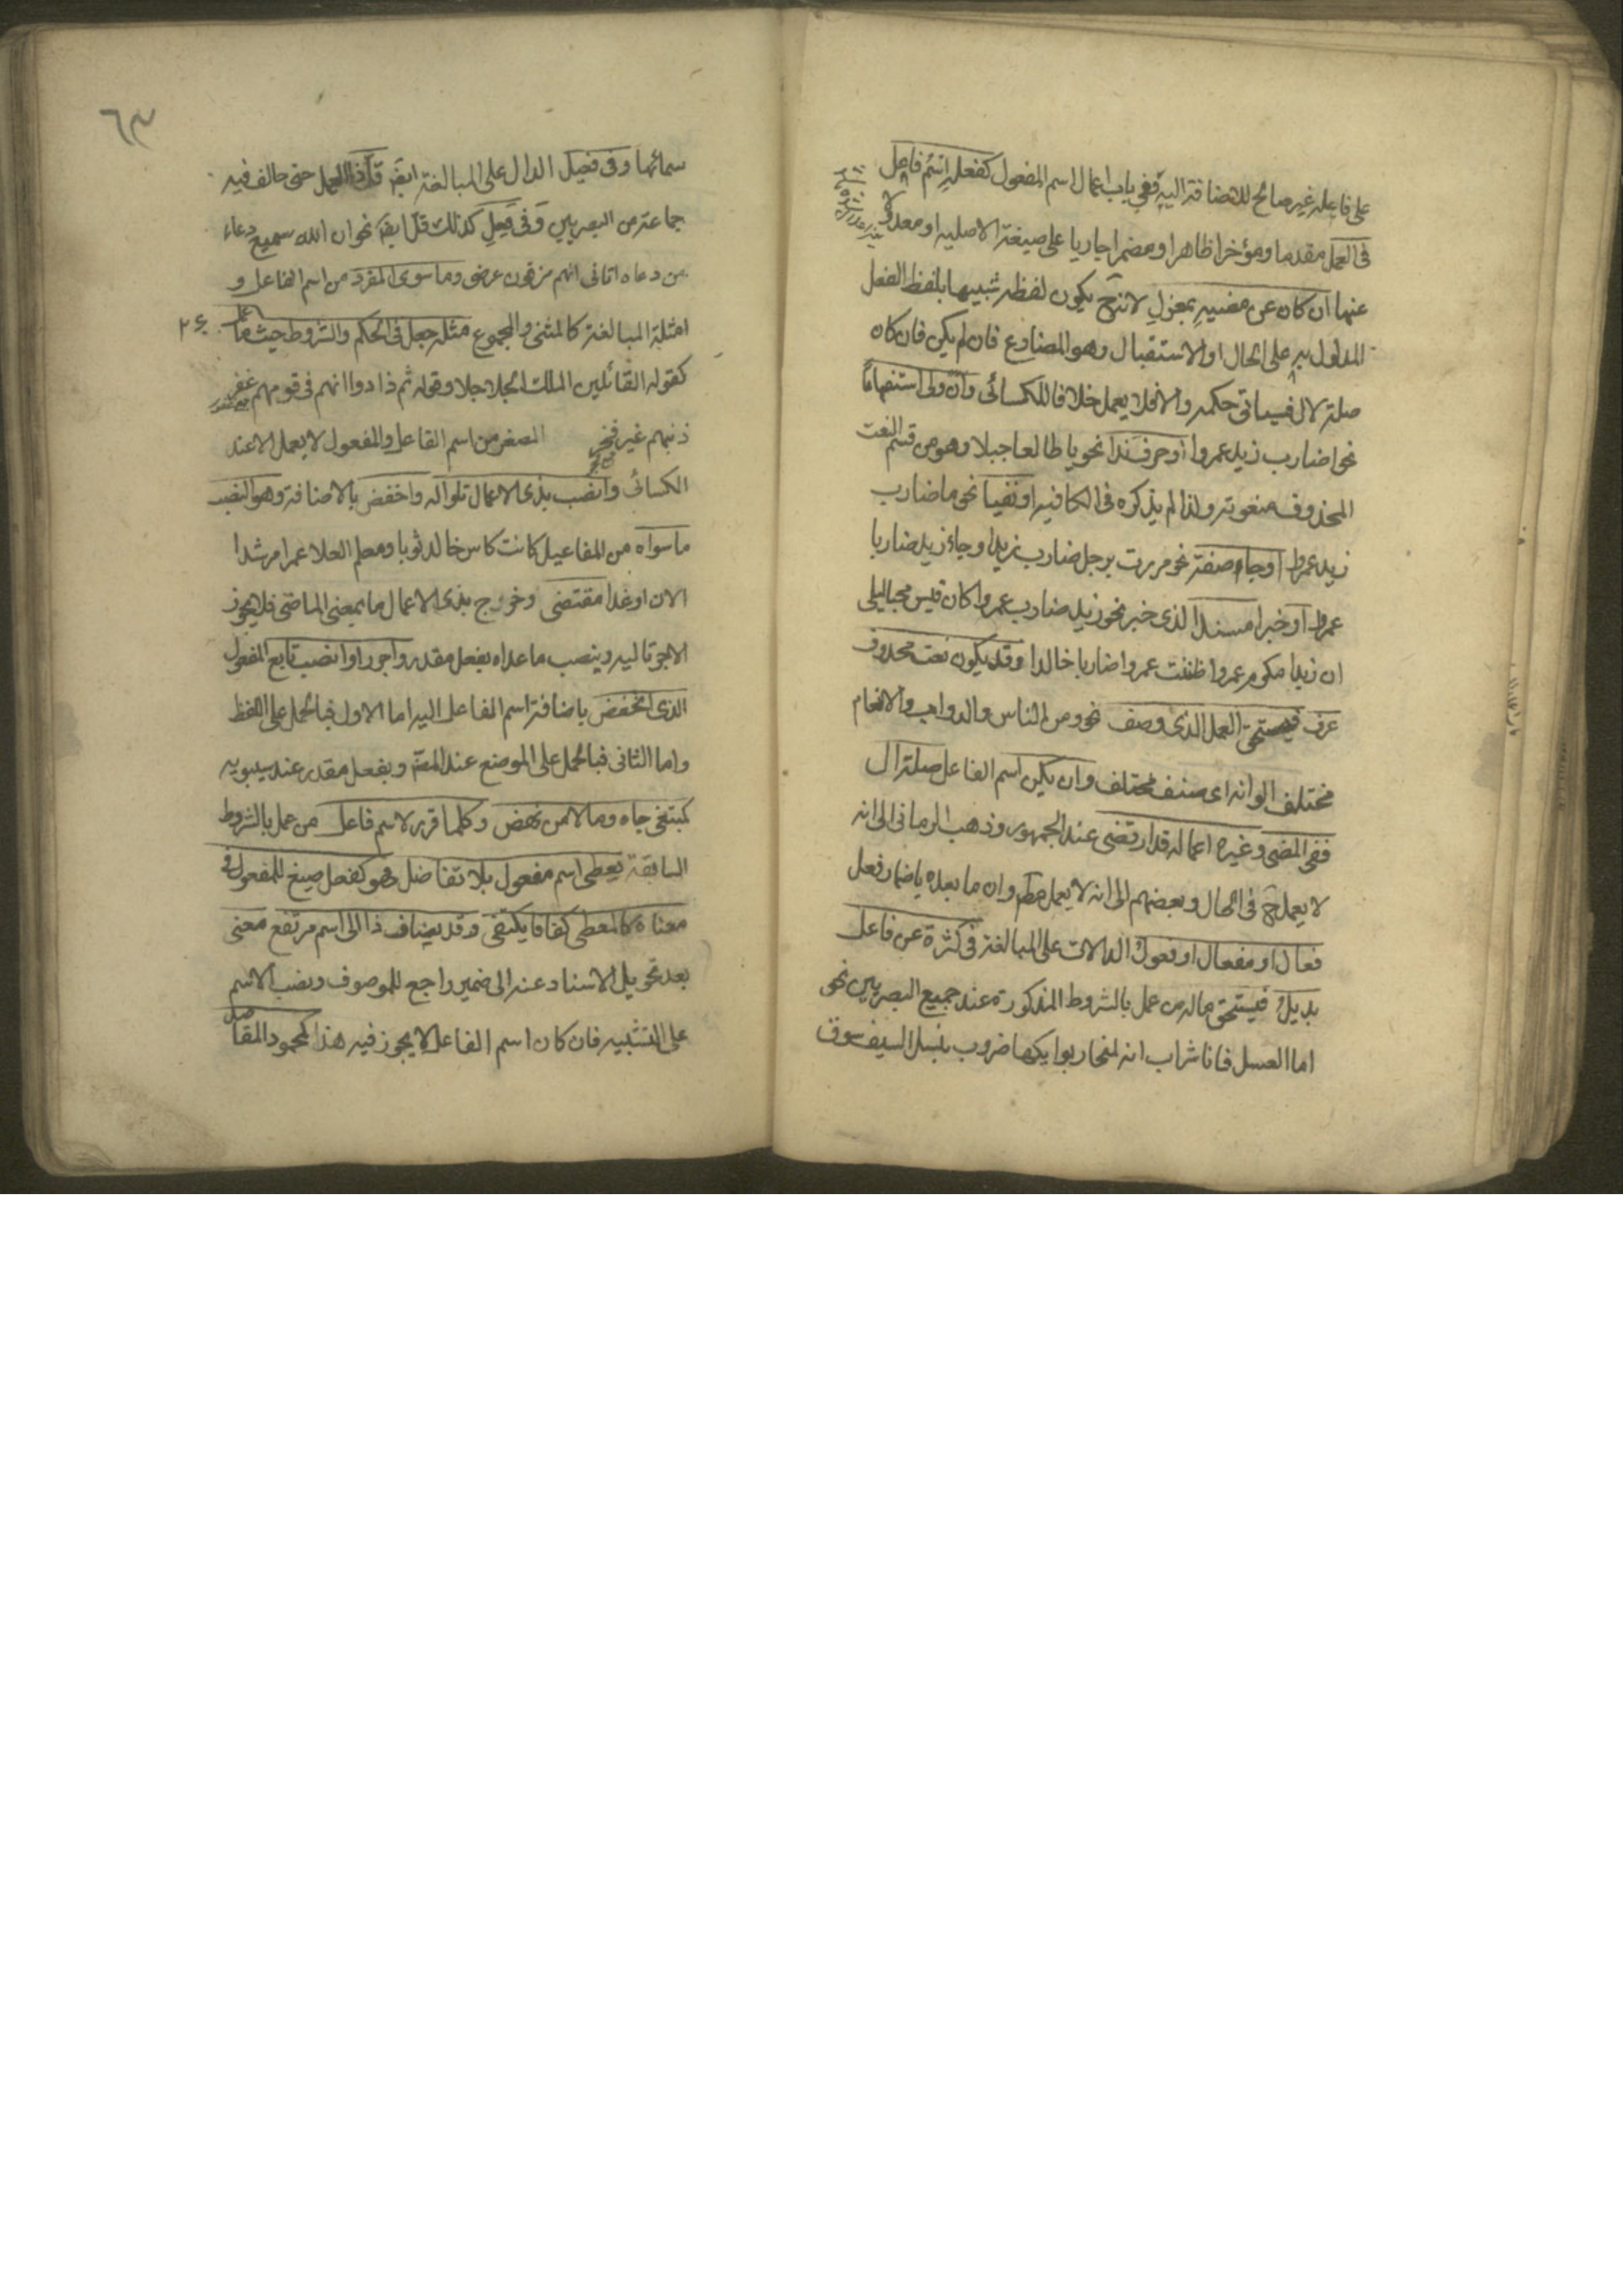 على فاعله غير صالح للاضافة اليه ففي باب اعمال اسم المفعول كفعله اسم فاعل
فى العمل مقدما ومؤخرا ظاهرا ومضمرا جاريا على صيغته الاصلية او معدولا
عنها ان كان عن مضيه بمعزل لانه ح يكون لفظه شبيها بلفظ الفعل
المدلول به على الحال او الاستقبال وهو المضارع فان لم يكن فان كان
صلة لال فسياتى حكمه والا فلا يعمل خلافا للكسائى وان ولى استفهاما
نحو اضارب زيد عمروا او حرف ندا نحو يا طالعا جبلا وهو من قسم النعت
المحذوف منعوته ولذا لم يذكره فى الكافيه او نفيا نحو ما ضارب
زيد عمروا او جاء صفة نحو مررت برجل ضارب زيدا وجاء زيد ضاربا
عمروا او خبرا مسندا الذى خبر نحو زيد ضارب عمروا كان قيس محبا ليلى
ان زيدا مكرم عمروا ظننت عمروا ضاربا خالدا وقد يكون نعت محذوف
عرف فيستحق العمل الذى وصف نحو ومن الناس والدواب والانعام
مختلف الوانه اى صنف مختلف وان يكن اسم الفاعل صلة ال
ففى المضى وغيره اعماله قد ارتضى عند الجمهور وذهب الرمانى الى انه
لا يعمل ح فى الحال وبعضهم الى انه لا يعمل مط وان ما بعده باضمار فعل
فعال او مفعال او فعول الدالات على المبالغة فى كثرة عن فاعل
بديل فيستحق ماله من عمل بالشروط المذكورة عند جميع البصريين نحو
اما العسل فانا شراب انه لمنحار بوايكها ضروب بنصل السيف سوق
٦٣
سمائها وفى فعيل الدال على المبالغة ايضا قل ذا العمل حتى خالف فيه
جماعة من البصريين وفى فعل كذلك قل ايضا نحو ان الله سميع دعاء
من دعاه اتانى انهم مزقون عرضى وما سوى المفرد من اسم الفاعل و
امثلة المبالغة كالمثنى والمجموع مثله جعل فى الحكم والشروط حيثما عمل
كقوله القائلين الملك الحلاحلا وقوله ثم زادوا انهم فى قومهم غفر
ذنبهم غير فخر المصغر من اسم الفاعل والمفعول لا يعمل الا عند
الكسائى وانصب بذى الاعمال تلوا له واخفض بالاضافة وهو لنصب
ما سواه من المفاعيل كانت كاس خالد ثوبا ومعلم العلا عمرا مرشدا
الان او غدا مقتضى وخرج بذى الاعمال ما بمعنى الماضى فلا يجوز
الا جر تاليه وينصب ما عداه بفعل مقدر واجرر او انصب تابع المفعول
الذى انخفض باضافة اسم الفاعل اليه اما الاول فبالحمل على اللفظ
واما الثانى فبالحمل على الموضع عند المص وبفعل مقدر عند سيبويه
كمبتغى جاه ومالا من نهض وكلما قرر لاسم فاعل من عمل بالشروط
السابقة يعطى اسم مفعول بلا تفاضل فهو كفعل صيغ للمفعول فى
معناه كالمعطى كفافا يكتفى وقد يضاف ذا الى اسم مرتفع معنى
بعد تحويل الاسناد عنه الى ضمير راجع للموصوف ونصب الاسم
على التشبيه فان كان اسم الفاعل لا يجوز فيه هذا كمحمود المقاصد